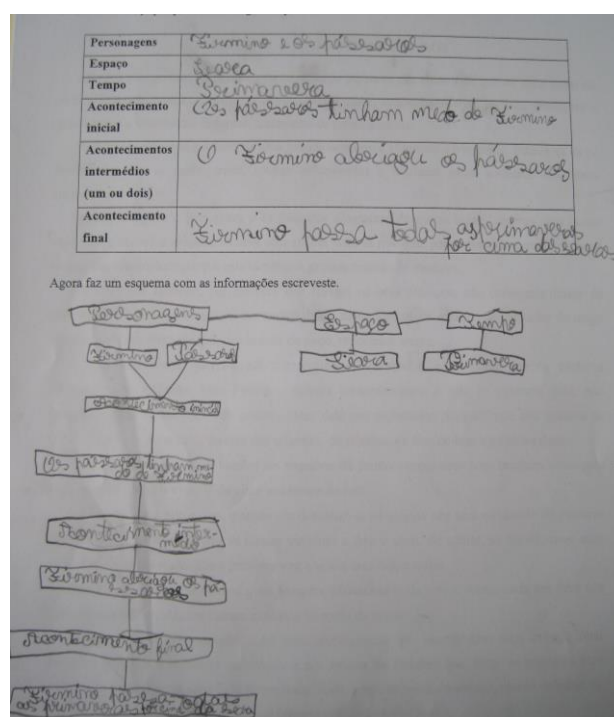 Personagens Firmino e os pássaros
Espaço Seara
Tempo Primavera
Acontecimento inicial Os pássaros tinham medo do Firmino
Acontecimentos intermédios (um ou dois) O Firmino abrigou os pássaros
Acontecimento final Firmino passa todas as primaveras
por cima das searas
Agora faz um esquema com as informações escreveste.
Personagens Espaço Tempo
Firmino Pássaros Seara Primavera
Acontecimento inicial
Os pássaros tinham me-
do do Firmino
Acontecimento inter-
médio
Firmino abrigou os pá-
ssaros
Acontecimento final
Firmino passa todas
as primaveras por cima da seara